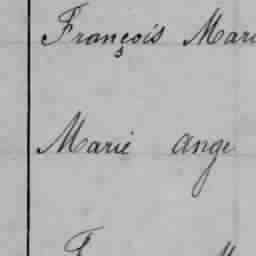 François Mari
Marie ange